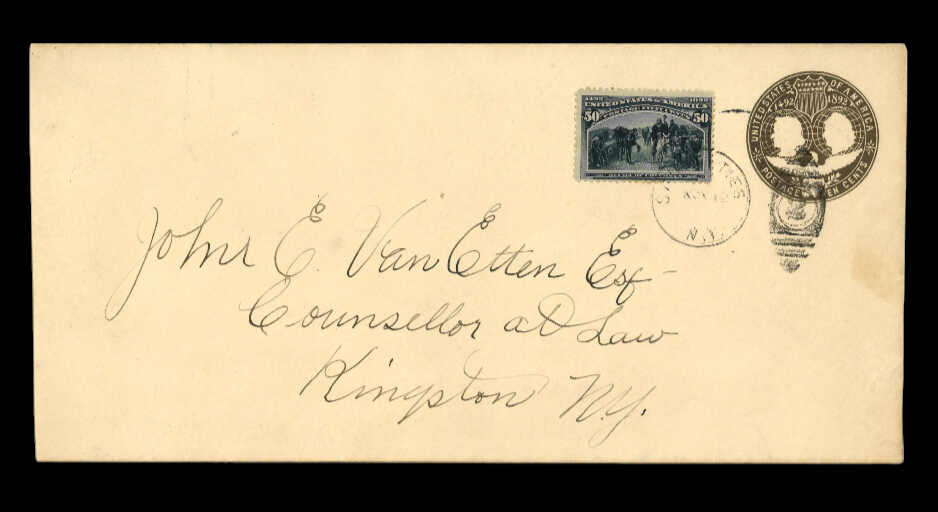 1492 1892
UNITED STATES OF AMERICA
POSTAGE FIFTY CENTS
50 50
UNITED STATES OF AMERICA
1492 1892
POSTAGE TEN CENTS
N.Y.
2
John E. Van Etten Esq
Counsellor at Law
Kingston N.Y.